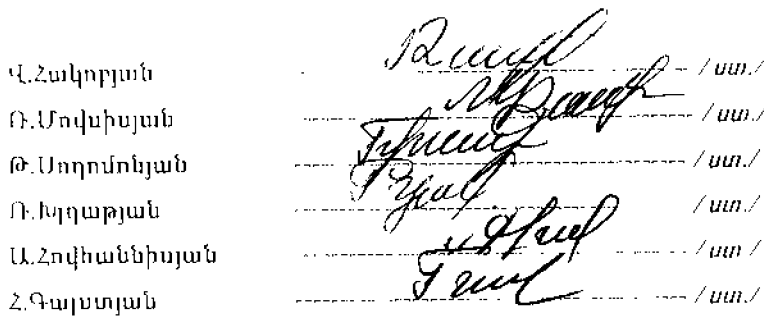 Վ.Հակոբյան / ստ./
Ռ.Մովսիսյան / ստ./
Թ.Սողոմոնյան / ստ./
Ռ.Խլղաթյան / ստ./
Ա.Հովհաննիսյան / ստ /
Հ.Գալստյան / ստ./